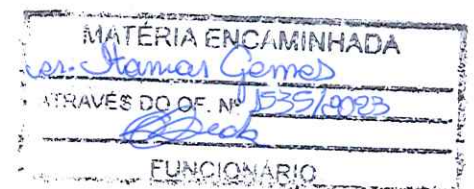 MATÉRIA ENCAMINHADA
ver. Itamar Gomes
ATRAVÉS DO OF. Nº 1535/2023
FUNCIONÁRIO